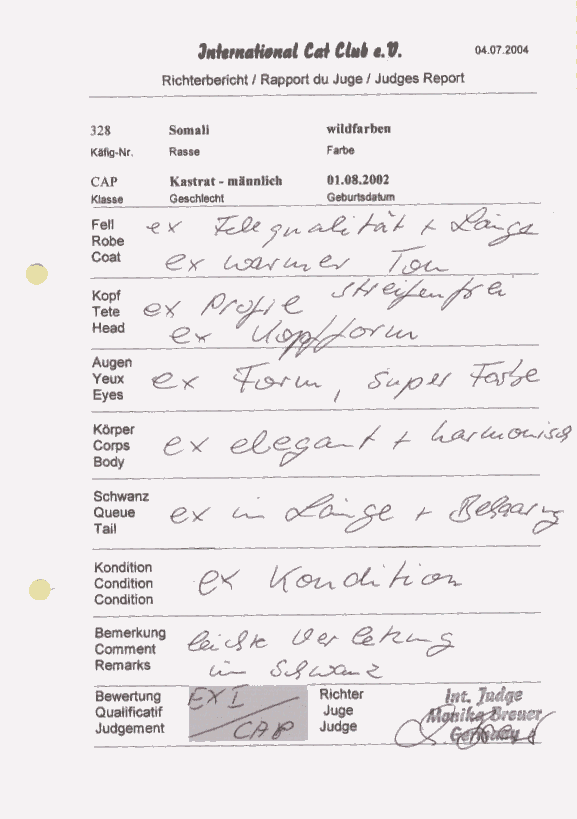 International Cat Club e.V. 04.07.2004
Richterbericht / Rapport du Juge / Judges Report
328 Somali wildfarben
Käfig-Nr. Rasse Farbe
CAP Kastrat - männlich 01.08.2002
Klasse Geschlecht Geburtsdatum
Fell ex Felequalität + Länge
Robe
Coat ex warmer Ton
streifenfrei
Kopf
Tete ex Profie
Head ex Kopfform
Augen
Yeux ex Form, super Farbe
Eyes
Körper
Corps ex elegant + harmonisch
Body
Schwanz
Queue ex in Länge + Behaarung
Tail
Kondition
Condition ex Kondition
Condition
Bemerkung leichte Verletzung
Comment
Remarks im Schwanz
Bewertung EX I Richter Int. Judge
Qualificatif Juge Monika Breuer
Judgement CAP Judge Germany